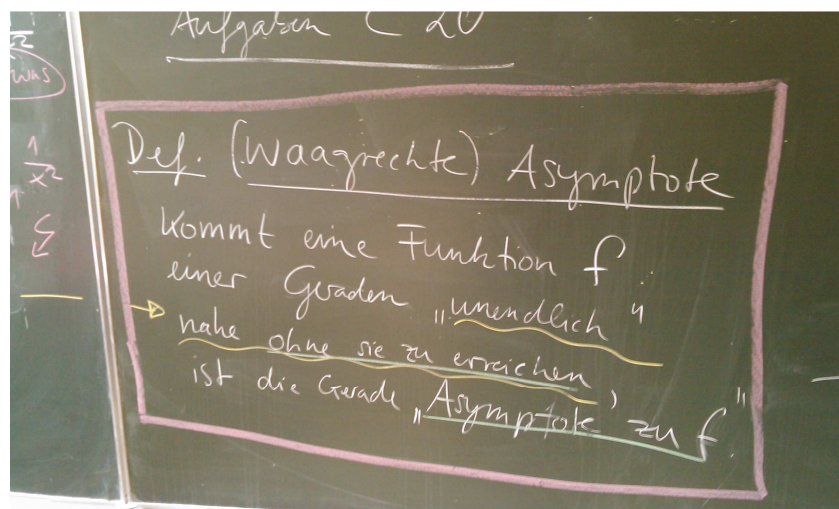 Aufgaben C 20
was
1
x²
Def. (Waagrechte) Asymptote
kommt eine Funktion f
einer Geraden „unendlich"
nahe ohne sie zu erreichen,
ist die Gerade „Asymptote zu f"